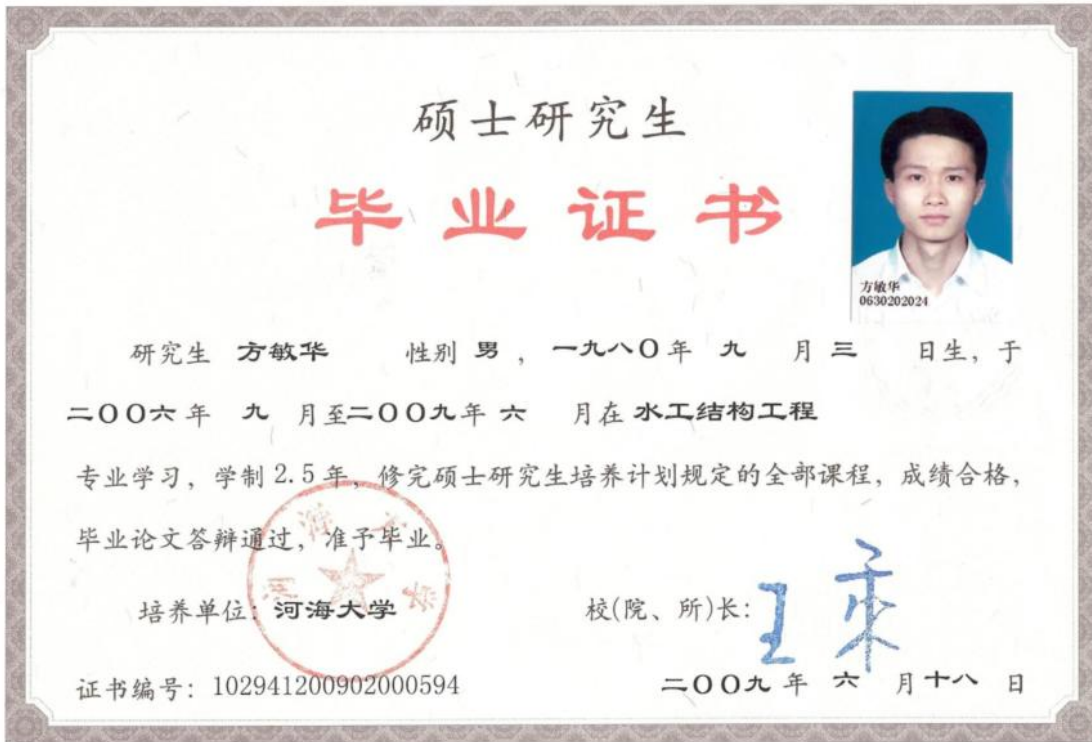 硕士研究生
毕业证书
方敏华
0630202024
研究生 方敏华 性别 男 , 一九八〇年 九 月 三 日生, 于
二〇〇六年 九 月至二〇〇九年 六 月在 水工结构工程
专业学习, 学制 2.5 年, 修完硕士研究生培养计划规定的全部课程, 成绩合格,
毕业论文答辩通过, 准予毕业。
河海大学
培养单位: 河海大学
校(院、所)长:
证书编号: 102941200902000594
二〇〇九 年 六 月 十八 日